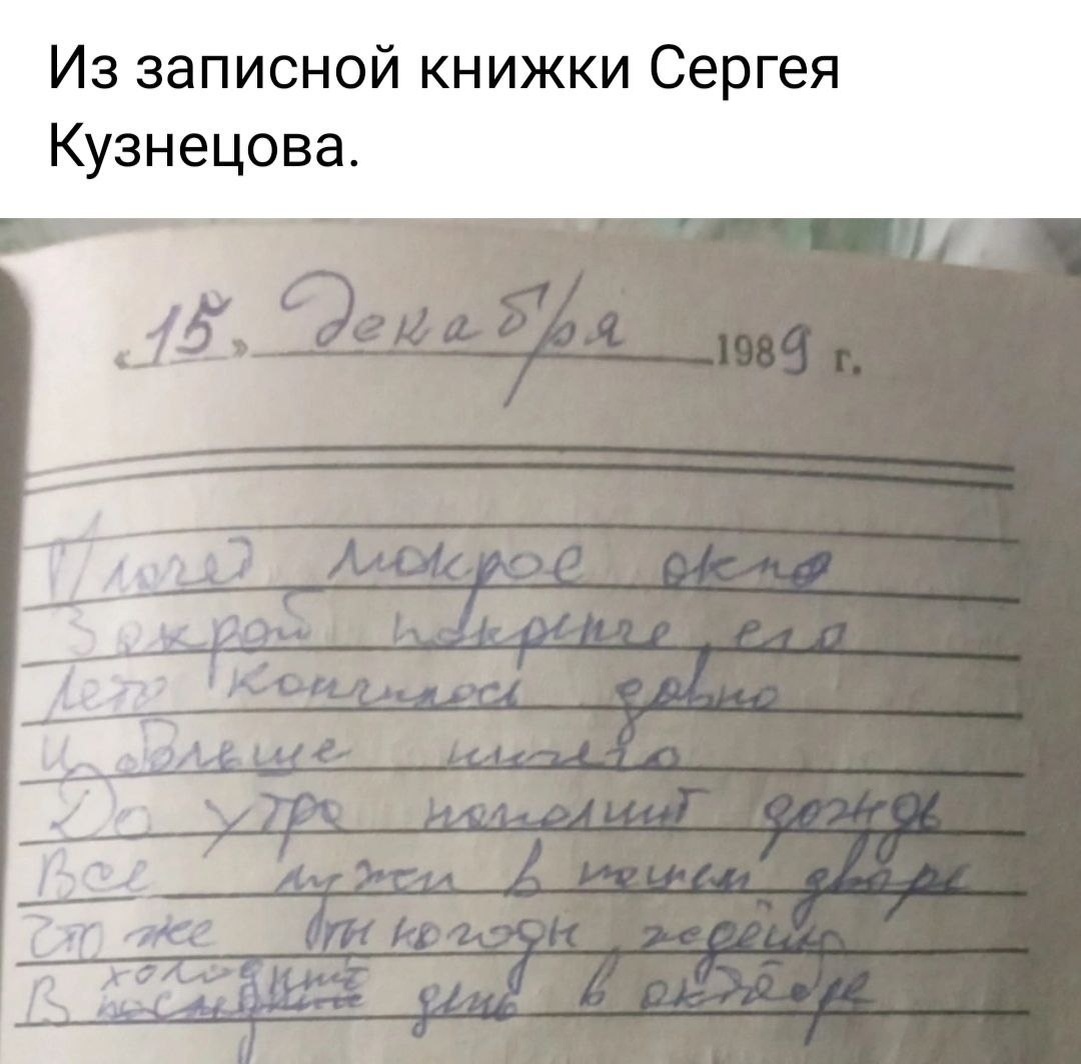 Из записной книжки Сергея
Кузнецова.
«15» Декабря 1989 г.
Плачет мокрое окно
Закрой покрепче его
Лето кончилось давно
И больше ничего
До утра наполнит дождь
Все лужи в нашем дворе
Что же ты погоды ждёшь
холодный
В последние день в октябре